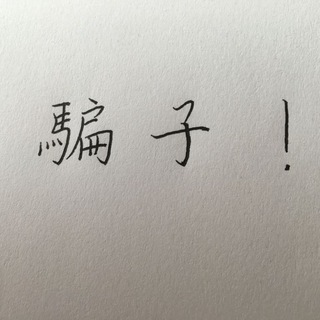 騙子！